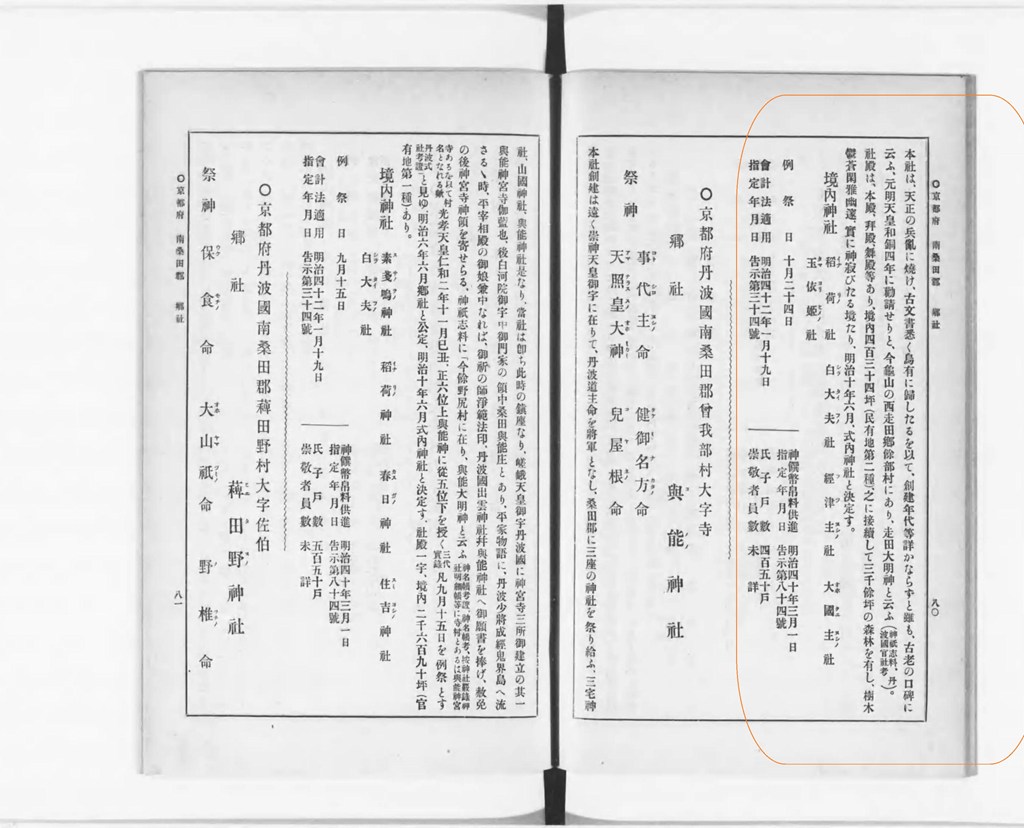 ○京都府 南桑田郡 郷社
八〇
本社は、天正の兵亂に燒け、古文書悉く烏有に歸したるを以て、創建年代等詳かならずと雖も、古老の口碑に
云ふ、元明天皇和銅四年に勸請せりと、今龜山の西走田郷餘部村にあり、走田大明神と云ふ(神祇志料、丹波國官社考)。
社殿は、本殿、拜殿、舞殿等あり、境內四百三十四坪(民有地第二種)、之に接續して三千餘坪の森林を有し、樹木
鬱蒼閑雅幽邃、實に神寂びたる境たり、明治十年六月、式內神社と決定す。
境內神社 稻荷社 白大夫社 經津主社 大國主社
玉依姬社
例祭日 十月二十四日
神饌幣帛料供進指定年月日 明治四十年三月一日告示第八十四號
會計法適用指定年月日 明治四十二年一月十九日告示第三十四號
氏子戶數 四百五十戶
崇敬者員數 未詳
○京都府丹波國南桑田郡曾我部村大字寺
郷社 與能神社
祭神 事代主命 健御名方命
天照皇大神 兒屋根命
本社創建は遠く崇神天皇御宇に在りて、丹波道主命を將軍となし、桑田郡に三座の神社を祭り給ふ、三宅神
社、山國神社、與能神社是なり、當社は卽ち此時の鎭座なり、嵯峨天皇御宇丹波國に神宮寺三所御建立の其一
與能神宮寺伽藍也、後白河院御宇中御門家の領中桑田與能庄とあり、平家物語に、丹波少將成經鬼界島へ流
さるゝ時、平宰相殿の御娘兼中なれば、御祈の師淨範法印、丹波國出雲神社幷與能神社へ御願書を捧げ、赦免
の後神宮寺神領を寄せらる、神祇志料に「今餘野尻村に在り、與能大明神と云ふ
光孝天皇仁和二年十一月己丑、正六位上與能神に從五位下を授く(三代實錄)凡九月十五日を例祭とす
(丹波式社考證)」と見ゆ、明治六年六月郷社と公定、明治十年六月式內神社と決定す、社殿一字、境內二千六百九十坪(官
有地第一種)あり。
境內神社 素戔嗚神社 稻荷神社 春日神社 住吉神社
白大夫社
例祭日 九月十五日
神饌幣帛料供進指定年月日 明治四十年三月一日告示第八十四號
會計法適用指定年月日 明治四十二年一月十九日告示第三十四號
氏子戶數 五百五十戶
崇敬者員數 未詳
○京都府丹波國南桑田郡薭田野村大字佐伯
郷社 薭田野神社
祭神 保食命 大山祇命 野椎命
○京都府 南桑田郡 郷社
八一